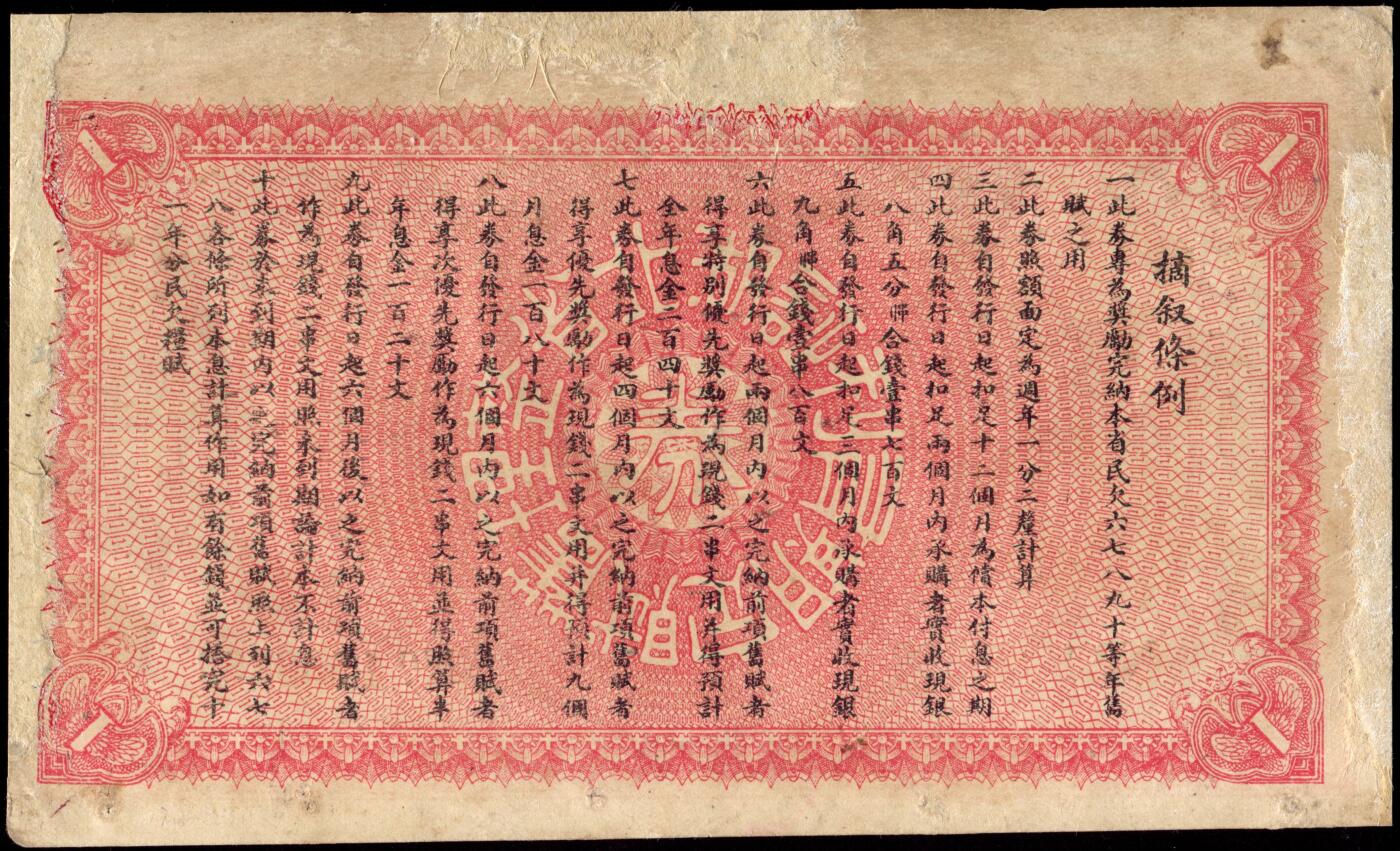 摘叙條例
一此券專為獎勵完納本省民欠六七八九十等年舊
賦之用
二此券照額面定為週年一分二釐計算
三此券自發行日起扣足十二個月為償本付息之期
四此券自發行日起扣足兩個月內承購者實收現銀
八角五分聯合錢壹串七百文
五此券自發行日起扣足三個月內承購者實收現銀
九角聯合錢壹串八百文
六此券自發行日起兩個月內以之完納前項舊賦者
得享特別優先獎勵作為現錢二串文用并得預計
全年息金二百四十文
七此券自發行日起四個月內以之完納前項舊賦者
得享優先獎勵作為現錢二串文用并得預計九個
月息金一百八十文
八此券自發行日起六個月內以之完納前項舊賦者
得享次優先獎勵作為現錢二串文用並得照算半
年息金一百二十文
九此券自發行日起六個月後以之完納前項舊賦者
作為現錢二串文用照未到期論計本不計息
十此券於未到期內以之完納前項舊賦照上列六七
八各條所列本息計算作用如有餘錢並可搭完十
一年分民欠糧賦
券
1
1
1
1